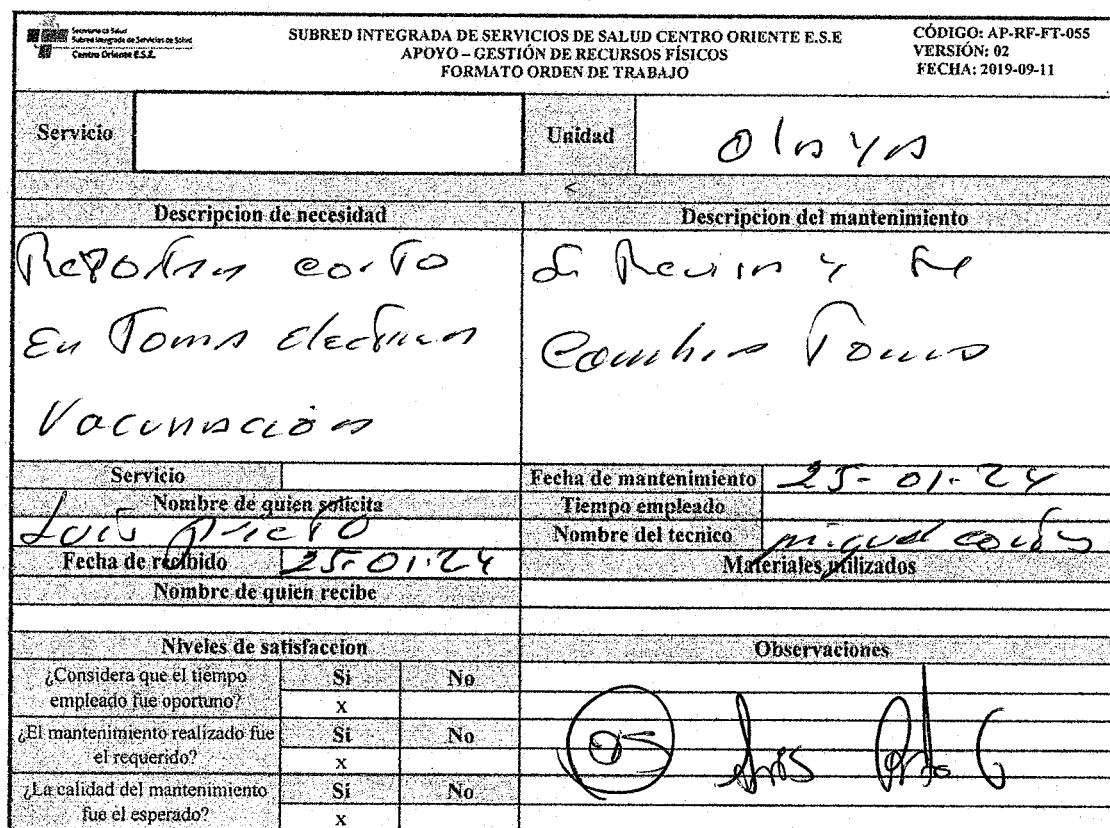 Secretaría de Salud
Subred Integrada de Servicios de Salud
Centro Oriente E.S.E.
SUBRED INTEGRADA DE SERVICIOS DE SALUD CENTRO ORIENTE E.S.E
APOYO – GESTIÓN DE RECURSOS FÍSICOS
FORMATO ORDEN DE TRABAJO
CÓDIGO: AP-RF-FT-055
VERSIÓN: 02
FECHA: 2019-09-11
Servicio
Unidad
Olaya
<
Descripcion de necesidad
Descripcion del mantenimiento
Reportan corto
En Toma electrica
Vacunación
Se Revisa y se
Cambia Toma
Servicio
Nombre de quien solicita
Luis Prieto
Fecha de recibido 25-01-24
Nombre de quien recibe
Fecha de mantenimiento 25-01-24
Tiempo empleado
Nombre del tecnico Miguel
Materiales utilizados
Niveles de satisfaccion
¿Considera que el tiempo empleado fue oportuno?
Si No
x
¿El mantenimiento realizado fue el requerido?
Si No
x
¿La calidad del mantenimiento fue el esperado?
Si No
x
Observaciones